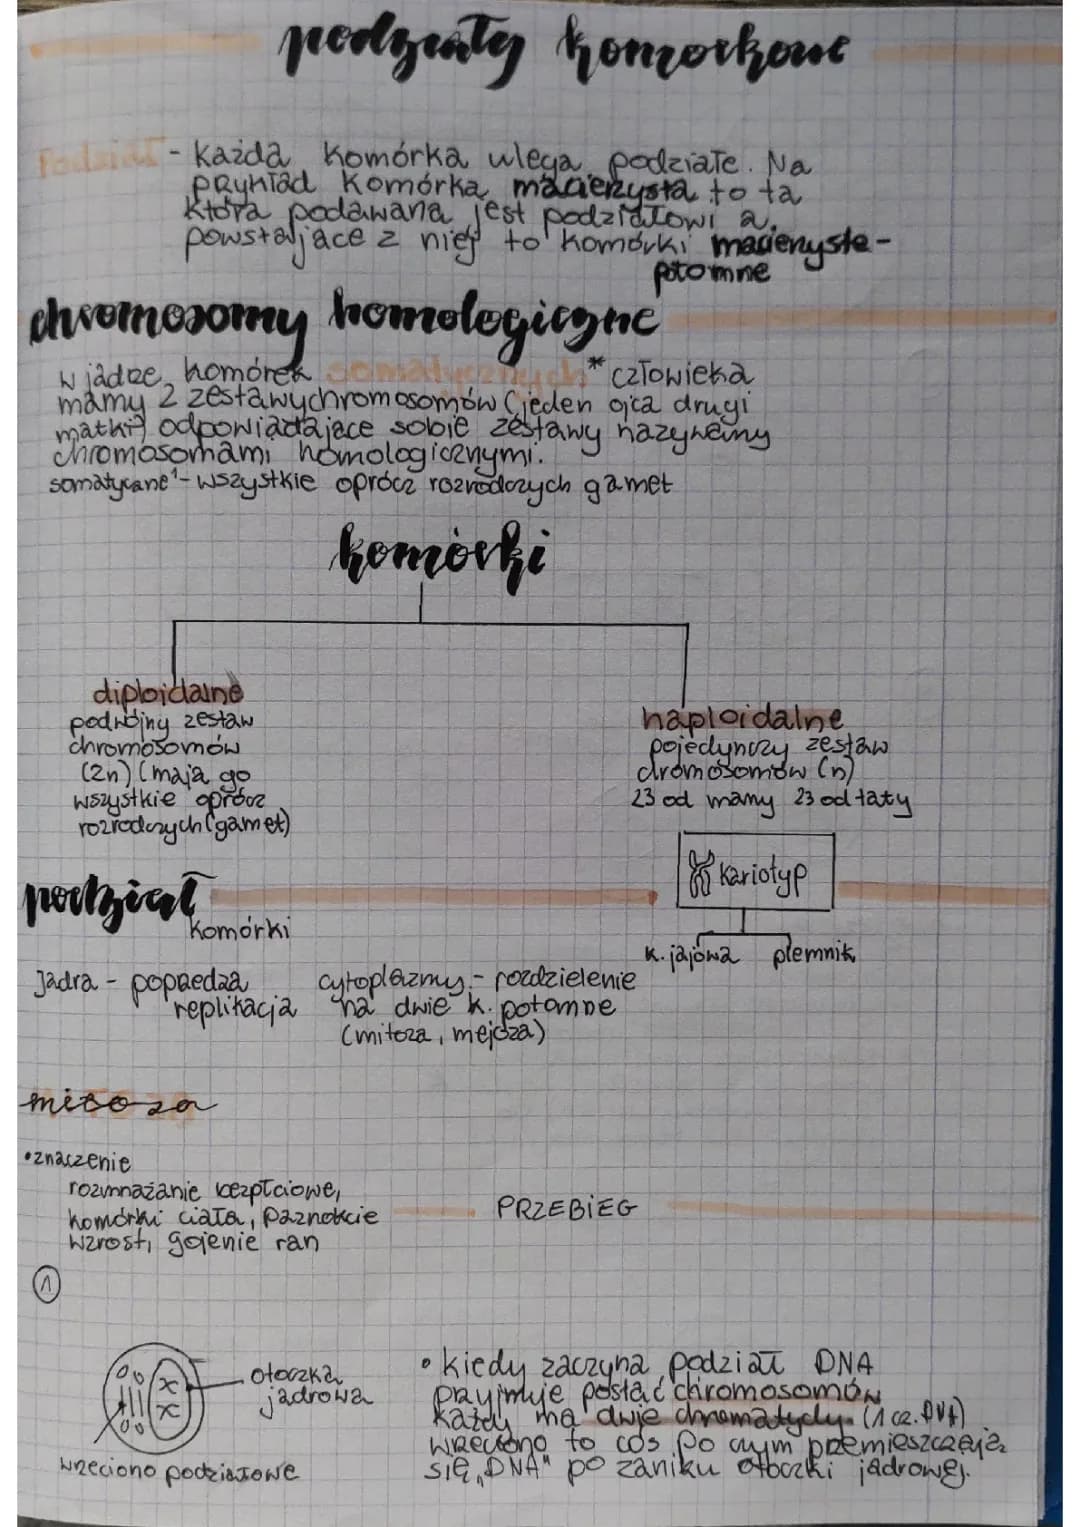 podziały komórkowe
Podział - każda komórka ulega podziałe. Na
przykład komórka macierzysta to ta
która podawana jest podziałowi a
powstające z niej to komórki macierzyste -
potomne
chromosomy homologiczne
w jądze komórek somatycznych * człowieka
mamy 2 zestawy chromosomów (jeden ojca drugi
matki) odpowiadające sobie zestawy nazywamy
chromosomami homologicznymi.
somatyczne - wszystkie oprócz rozrodczych gamet
komórki
diploidalne
podwójny zestaw
chromosomów
(2n) (mają go
wszystkie oprócz
rozrodczych (gamet)
haploidalne
pojedynczy zestaw
chromosomów (n)
23 od mamy 23 od taty
kariotyp
k. jajowa plemnik
podział
komórki
Jądra - poprzedza
replikacja
cytoplazmy - rozdzielenie
na dwie k. potomne
(mitoza, mejoza)
mitoza
• znaczenie
rozmnażanie bezpłciowe,
komórki ciała, paznokcie
wzrost, gojenie ran
PRZEBIEG
1
otoczka
jądrowa
wrzeciono podziałowe
• kiedy zaczyna podział DNA
przyjmuje postać chromosomów
każdy ma dwie chromatydy. (1 cz. DNA)
wrzeciono to coś po czym przemieszczają
się „DNA" po zaniku otoczki jądrowej.